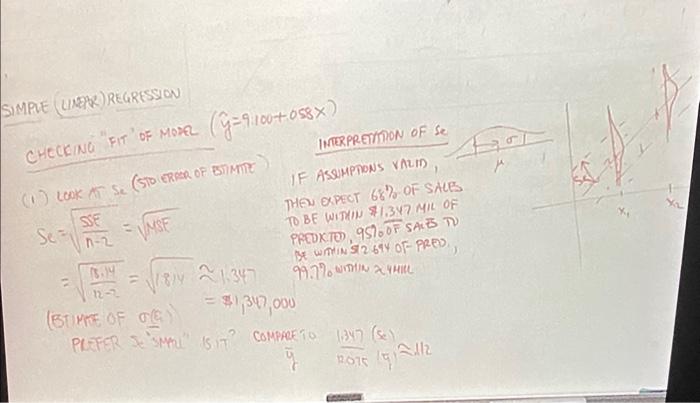 SIMPLE (LINEAR) REGRESSION
CHECKING "FIT" OF MODEL (ŷ=9.100+.058X)
(1) LOOK AT Se (STD ERROR OF ESTIMATE)
Se = √(SSE/n-2) = √MSE
= √(18.14/12-2) = √1.814 ≈ 1.347
= $1,347,000
(ESTIMATE OF σ(ε))
PREFER Se "SMALL" IS IT? COMPARE TO ȳ 1.347 (Se) / 12.075 (ȳ) ≈ .112
INTERPRETATION OF Se
IF ASSUMPTIONS VALID,
THEN EXPECT 68% OF SALES
TO BE WITHIN $1.347 MIL OF
PREDICTED, 95% OF SALES TO
BE WITHIN $2.694 OF PRED.,
99.7% WITHIN ≈ 4 MILL
σ
μ
X₁
X₂